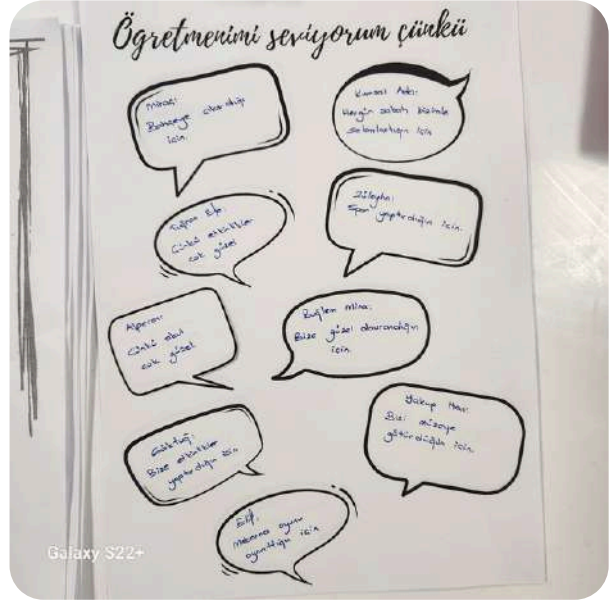 Öğretmenimi seviyorum çünkü
Miraç:
Bahçeye çıkardığı
için.
Her gün sabah bizimle
selamlaştığı için
Tuğra Efe:
Çünkü etkinlikler
çok güzel
Züleyha:
Spor yaptırdığı için.
Alperen:
Çünkü okul
çok güzel
Buğlem Mina:
Bize güzel davrandığı
için.
Göktuğ:
Bize etkinlikler
yaptırdığı için
Yakup
Bizi müzeye
götürdüğü için.
Elif:
oyunu
oynattığı için
Galaxy S22+